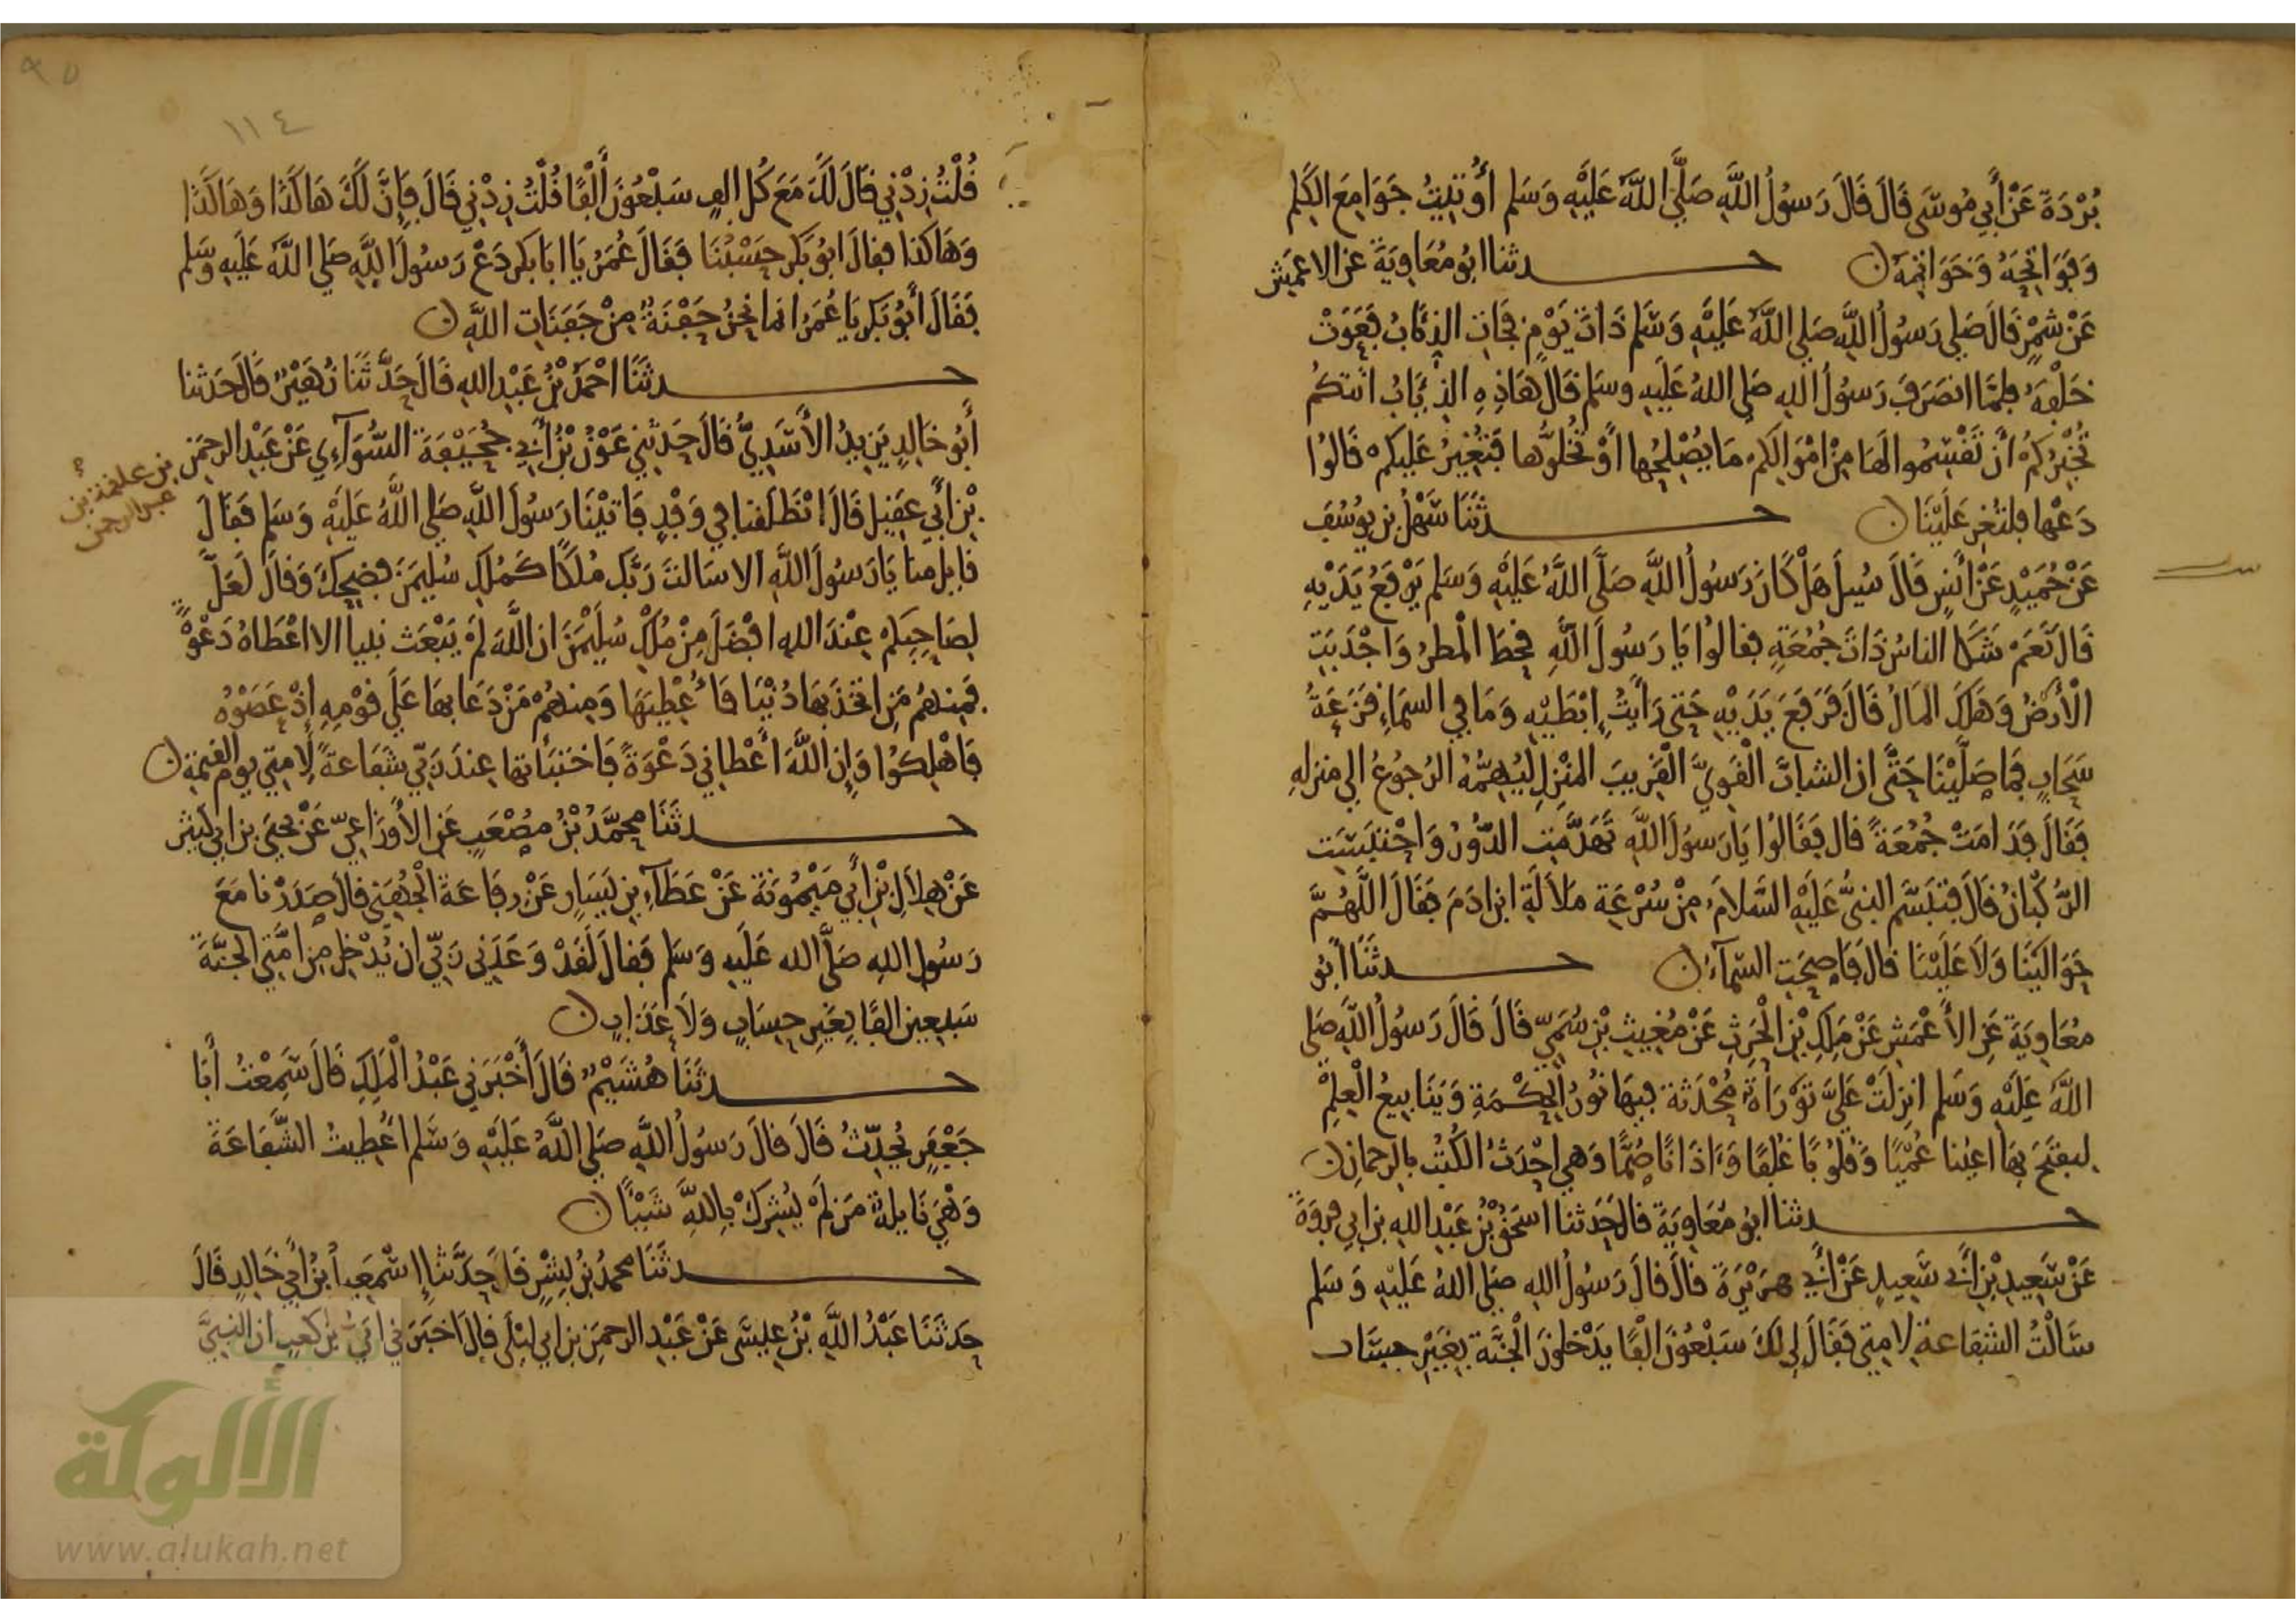 بُرْدَةَ عَنْ أَبِي مُوسَى قَالَ قَالَ رَسُولُ اللَّهِ صَلَّى اللَّهُ عَلَيْهِ وَسَلَّمَ أُوتِيتُ جَوَامِعَ الكَلِمِ
وَفَوَاتِحَهُ وَخَوَاتِمَهُ ن حدثنا ابو مُعَاوِيَةَ عن الاعمَشِ
عَنْ شِمْرٍ قَالَ صَلى رَسُولُ اللَّهِ صَلى اللَّهُ عَلَيْهِ وَسَلم ذَاتَ يَوْمٍ فَجَاتِ الذِّئَابُ فَعَوَتْ
خَلْفَهُ فلمَّا انصَرَفَ رَسُولُ اللهِ صَلى اللهُ عَلَيهِ وسَلم قَالَ هَاذِهِ الذِّئَابُ اتَتكُمْ
تُخْبِرُكُمْ أَنْ تَقْسِمُوا لَهَا مِنْ امْوَالِكم مَا يُصْلِحُها أَوْ تُخَلوُّها فَتُغِيرُ عَلَيكم قَالُوا
دَعْها فلتُغِر عَلَيْنَا ن حدثَنَا سَهْلُ بن يوُسُفَ
عَنْ حُمَيْدٍ عَنْ أَنَسٍ قَالَ سُيِلَ هَلْ كَانَ رَسُولُ اللَّهِ صَلَّى اللَّهُ عَلَيْهِ وَسَلم يَرْفَعُ يَدَيْهِ
قَالَ نَعَمْ شَكَا الناسُ ذَاتَ جُمُعَةٍ فقالُوا يَا رَسُولَ اللَّهِ قحطَ الْمَطرُ وَاجْدَبَتِ
الْأَرْضُ وَهَلَكَ المَالُ قَالَ فَرَفَعَ يَدَيْهِ حَتى رَأَيْتُ إِبْطَيْهِ وَمَا فِي السمَاءِ قَزَعَةُ
سَحَابٍ فمَا صَلَّيْنَا حَتَّى ان الشابَّ الْقَوِيَّ الْقَرِيبَ المَنْزِلِ ليُهِمُّهُ الرُجوُعُ الى منزلهِ
فَقَالَ فَدَامَتْ جُمُعَةً قال فَقَالُوا يَا رَسُولَ اللَّهِ تَهَدَّمَتِ الدُّوُرُ وَاحْتبَسَت
الرُّكْبَانُ قَالَ فَتَبَسَّم النبىُّ عَلَيْهِ السَّلامُ مِنْ سُرْعَةِ مَلاَلَةِ ابن ادَمَ فَقَالَ اللَّهُمَّ
حَوَالَيْنَا وَلَا عَلَيْنَا قال فَاصحَتِ السّمَآءُ ن حدثَنَا أَبُو
مُعَاوِيَةَ عَن الأَعْمَشِ عَنْ مَلِكِ بْنِ الْحَرِثِ عَنْ مُغِيثِ بْنِ سُمَيّ قَالَ قَالَ رَسُولُ اللَّهِ صَلى
اللَّهُ عَلَيْهِ وَسَلم انزِلَتْ عَلَيَّ تَوْرَاةٌ مُحْدَثَة فِيهَا نُورُ الْحِكْمَةِ وَيَنَابِيعُ الْعِلْمِ
ليفتَحَ بِهَا اعيُنا عُمْيًا وَقُلُوبًا غُلفًا وَءَاذَانًا صُمًّا وَهي احْدَثُ الكُتُب بالرحمان ن
حدثنا ابو مُعَاوِيَة قال حَدثنا اسحَقُ بْنُ عَبْدِ اللهِ بن ابِي فروَةَ
عَنْ سَعِيدِ بْنِ أَبِي سَعِيدٍ عَنْ أَبِي هرَيْرَةَ قالَ قالَ رَسُولُ اللهِ صلى اللهُ عَلَيْهِ وَسَلم
سَالْتُ الشفَاعةَ لامتِي فَقَالَ لِي لكَ سَبْعُونَ الْفًا يَدْخلونَ الْجَنَّةَ بِغَيْرِ حسَاب
٩٥
١١٤
قُلْتُ زِدْنِي قَالَ لَكَ مَعَ كُل الفٍ سَبْعُونَ أَلْفًا قُلْتُ زِدْنِي قَالَ فَإِنَّ لَكَ هَاكَذَا وَهَاكَذَا
وَهَاكذا فقالَ ابُو بَكْرٍ حَسْبُنَا فَقَالَ عُمَرُ يَا ابَا بَكرٍ دَعْ رَسُولَ اللَّهِ صَلى اللَّهُ عَلَيهِ وسَلم
فَقَالَ أَبُو بَكرٍ يَا عُمَرُ انما نَحْنُ حَفْنَةٌ مِنْ حَفَنَاتِ اللَّهِ ن
حدثَنَا احْمَدُ بْنُ عَبْدِ اللهِ قَالَ حَدَّثَنَا زُهَيْرٌ قَالَ حَدثنا
أَبُو خَالِدٍ يَزِيدُ الأَسَدِيُّ قَالَ حَدثني عَوْنُ بْنُ أَبِي جُحَيْفَةَ السُّوَآءِي عَنْ عَبْدِ الرحمَنِ
بن علقمة بن
عبد الرحمن
بْنِ أَبِي عَقِيلٍ قَالَ انْطَلَقنا فِي وَفْدٍ فَاتَيْنَا رَسُولَ اللَّهِ صَلى اللَّهُ عَلَيْهِ وَسَلم فَقَالَ
قَايل منا يَا رَسُولَ اللَّهِ الا سَالتَ رَبَّك مُلكًا كَمُلكِ سُليمَنَ فضحِكَ وَقالَ لَعَلَّ
لصَاحِبِكم عِنْدَ اللهِ افْضَلَ مِنْ مُلكِ سُلَيْمَنَ ان اللَّهَ لَمْ يَبْعَث نبيا الا اعْطَاهُ دَعْوَةً
فَمِنهُم مَن اتخَذَ بهَا دُنْيَا فَأُعْطِيَهَا وَمِنهُمْ مَنْ دَعَا بهَا عَلَى قَوْمِهِ إِذْ عَصَوْهُ
فَاهْلِكوُا وَإِن اللَّهَ أَعْطانِي دَعْوَةً فَاختَبَأتها عِندَ رَبّي شفَاعةً لامتِي يوم القيمة ن
حدثَنَا محمَّدُ بْنُ مصْعَبٍ عَن الأَوزَاعِيّ عَنْ يحيَى بن ابي كَثير
عَنْ هِلَالِ بْنِ أَبِي مَيْمُونَةَ عَنْ عَطَآءِ بن يَسَارٍ عَنْ رِفَاعَةَ الْجُهَنِي قال صدَرْنا مَعَ
رَسُولِ اللهِ صَلَّى الله عَلَيهِ وَسَلم فَقالَ لَقَدْ وَعَدَنِي رَبِّي ان يُدْخِلَ مِن امَّتِي الجنَّةَ
سَبعِينَ الفًا بِغَيرِ حِسَابٍ وَلَا عَذَابٍ ن
حدثَنَا هُشَيْمٌ قَالَ أَخْبَرَنِي عَبْدُ الْمَلِكِ قَالَ سَمِعْتُ أَبَا
جَعْفَرٍ يُحَدِّثُ قَالَ قالَ رَسُولُ اللَّهِ صَلى اللَّهُ عَلَيْهِ وَسَلم اعْطِيتُ الشَّفَاعَةَ
وَهْيَ نَايلةٌ مَن لَمْ يُشرِكْ بِاللَّهِ شَيْئًا ن
حدثَنَا محمدُ بْنُ بِشْرٍ قَالَ حَدَّثَنا إسْمَعِيلُ بنُ أَبِي خَالِدٍ قَالَ
حَدثَنَا عَبْدُ اللَّهِ بْنُ عيسَى عَنْ عَبْدِ الرحمَن بن ابِي ليْلَى قال اخبَرَني ابَيُّ بن كعبٍ ان النبيَّ
الألوكة
www.alukah.net